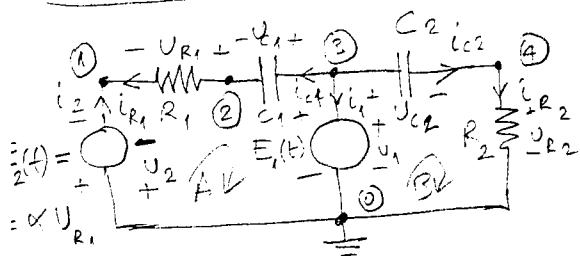 ① - U_R1 + - U_C1 + ③ C2 i_C2 ④
i_2 i_R1 R1 ② C1 i_C1 i_1 + U_C2 - i_R2
E_2(t) = - U_2 + A E_1(t) + U_1 - B R2 + U_R2 -
= α U_R1 ⓪